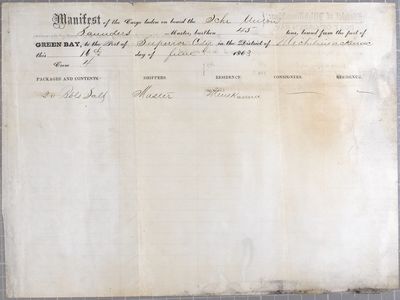 Manifest of the Cargo laden on board the Schr Union
Saunders Master, burthen 45 tons, bound from the port of
GREEN BAY, to the Port of Superior City in the District of Michilimackinac
this 16th day of June 1863
Crew 4
PACKAGES AND CONTENTS. SHIPPERS. RESIDENCE. CONSIGNEE. RESIDENCE.
20 Bbls Salt Master